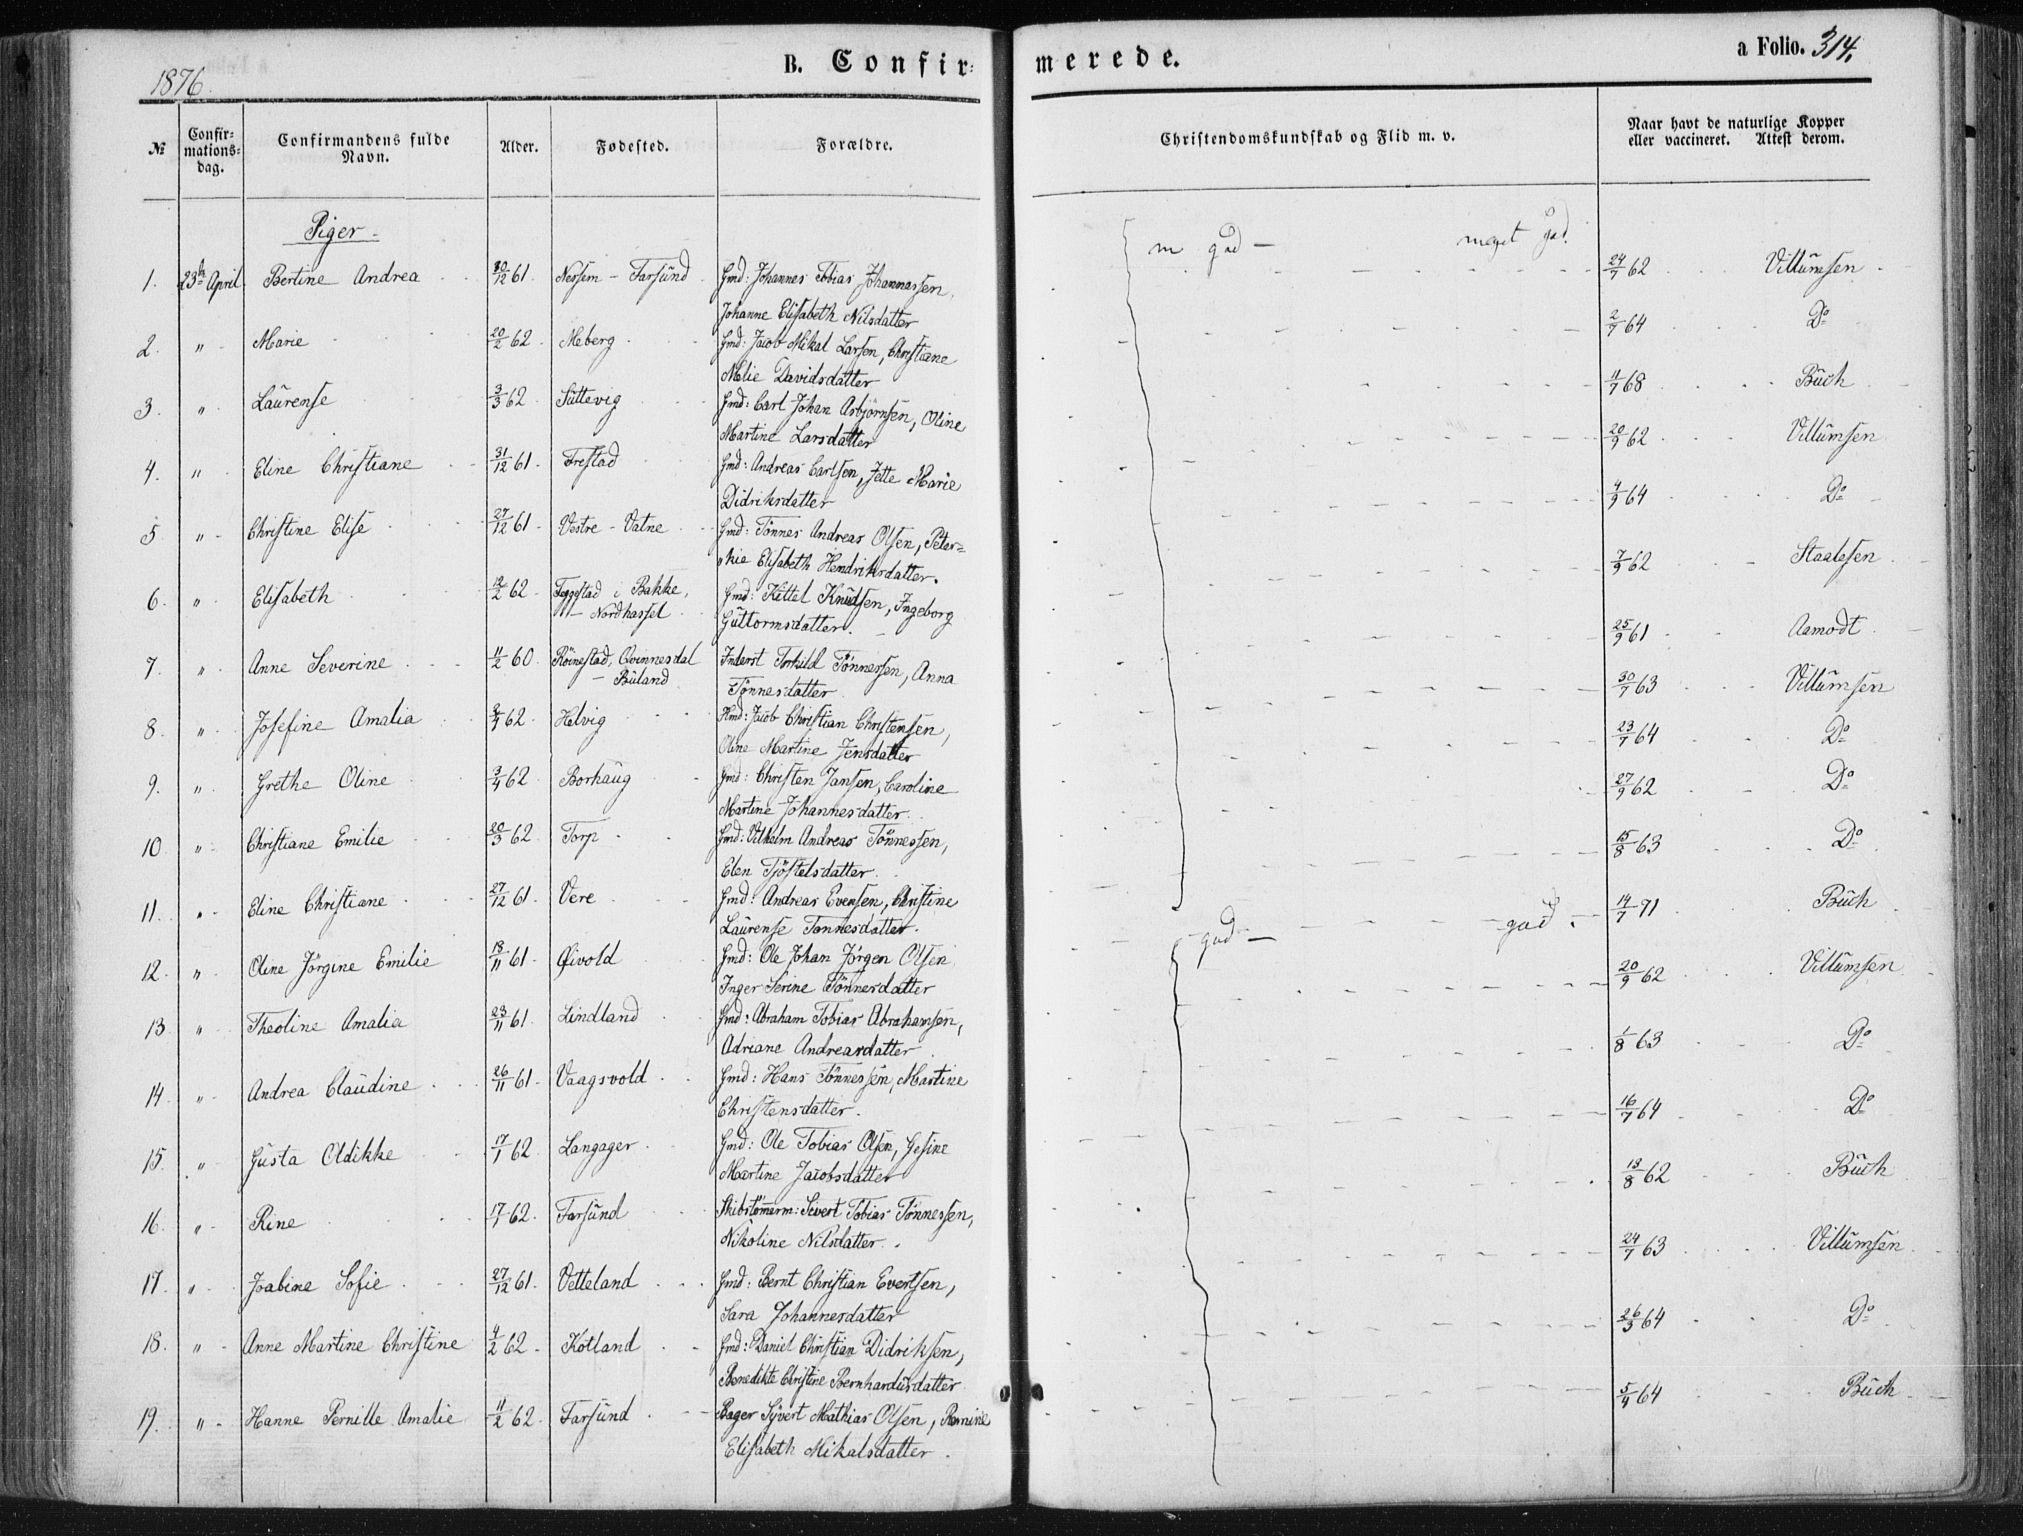 1876.
B. Confirmerede.
a Folio. 314.
№
Confirmationsdag.
Confirmandens fulde Navn.
Alder.
Fødested.
Forældre.
Christendomskundskab og Flid m. v.
Naar havt de naturlige Kopper eller vaccineret. Attest derom.
Piger
m god — meget god.
1. 23de April Bertine Andrea 30/12 61. Nessem - Farsund Gmd: Johannes Tobias Johannessen, 24/7 62 Villumsen
Johanne Elisabeth Nilsdatter
2. " Marie 20/2 62. Meberg Gmd: Jacob Mikal Larsen, Christiane 2/7 64 Do
Malie Davidsdatter
3. " Laurense 3/3 62. Suttevig Gmd: Carl Johan Asbjørnsen, Oline 11/7 68 Buch
Martine Larsdatter
4. " Eline Christiane 31/12 61. Frestad Gmd: Andreas Carlsen, Jette Marie 20/9 62 Villumsen
Didriksdatter
5 " Christine Elise 27/12 61. Vestre - Vatne Gmd: Tønnes Andreas Olsen, Peter= 4/9 64 Do
"kie Elisabeth Hendriksdatter.
6. " Elisabeth 12/2 62. i Bakke, Gmd: Kittel Knudsen, Ingeborg 7/9 62 Staalesen
- Nordhassel Guttormsdatter.
7. " Anne Severine 11/2 60. Røinestad, Qvinnesdal Inderst Torkild Tønnessen, Anna 25/9 61 Aamodt
- Buland Tønnesdatter
8. " Josefine Amalia 2/4 62. Helvig Hmd: Jacob Christian Christensen, 30/7 63 Villumsen
Oline Martine Jensdatter
9. " Grethe Oline 3/4 62 Borhaug Gmd: Christen Jansen, Caroline 23/7 64 Do
Martine Johannesdatter.
10. " Christiane Emilie 20/3 62 Torp Gmd: Vilhelm Andreas Tønnessen, 27/9 62 Do
Elen Tjøstelsdatter.
11. " Eline Christiane 27/12 61 Vere Gmd: Andreas Evensen, Christine 15/8 63 Do
Laurense Tønnesdatter.
god — god.
12. " Oline Jørgine Emilie 18/11 61 Øivold Gmd: Ole Johan Jørgen Olsen 14/7 71 Buch
Inger Serine Tønnesdatter
13 " Theoline Amalia 23/11 61. Lindland Gmd: Abraham Tobias Abrahamsen, 20/9 62 Villumsen
Adriane Andreasdatter
14. " Andrea Claudine 26/11 61. Vaagsvold Gmd: Hans Tønnessen, Martine 1/8 63 Do
Christensdatter.
15. " Gusta Oldikke 17/1 62. Langager Gmd: Ole Tobias Olsen, Gesine 16/7 64 Do
Martine Jacobsdatter
16. " Rine 17/1 62. Farsund Skibstømerm: Sivert Tobias Tønnessen, 18/8 62 Buch
Nikoline Nilsdatter.
17. " Joabine Sofie 27/12 61. Vetteland Gmd: Bernt Christian Evertsen, 24/7 63 Villumsen
Sara Johannesdatter
18. " Anne Martine Christine 4/2 62. Kotland Gmd: Daniel Christian Didriksen, 26/3 64 Do
Benedikte Christine Bernhardusdatter
19. " Hanne Pernille Amalie 11/2 62. Farsund Bager Sjvert Mathias Olsen, Ramine 5/4 64 Buch
Elisabeth Mikalsdatter.